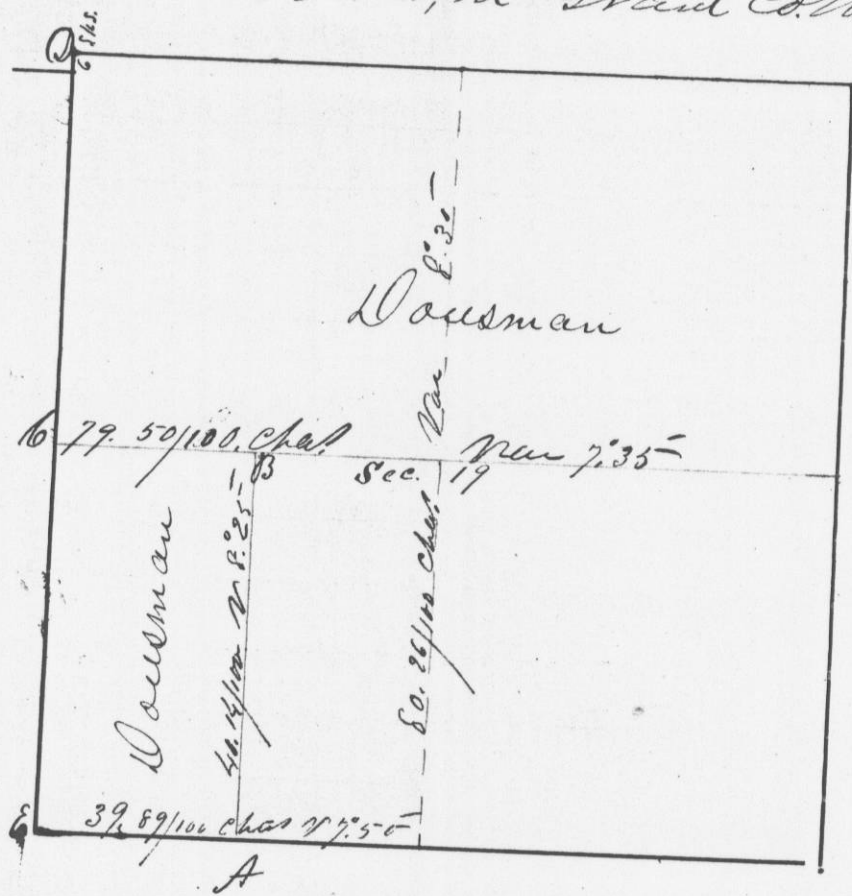 Co.
D
6 Lks.
Var 8°30'
Dousman
C
79. 50/100. Chas.
B
Sec. 19
Var 7°35'
Dousman
40.14/100 V 8°25'
80. 26/100 Chas.
E
39. 89/100 Chas V 7°55'
A